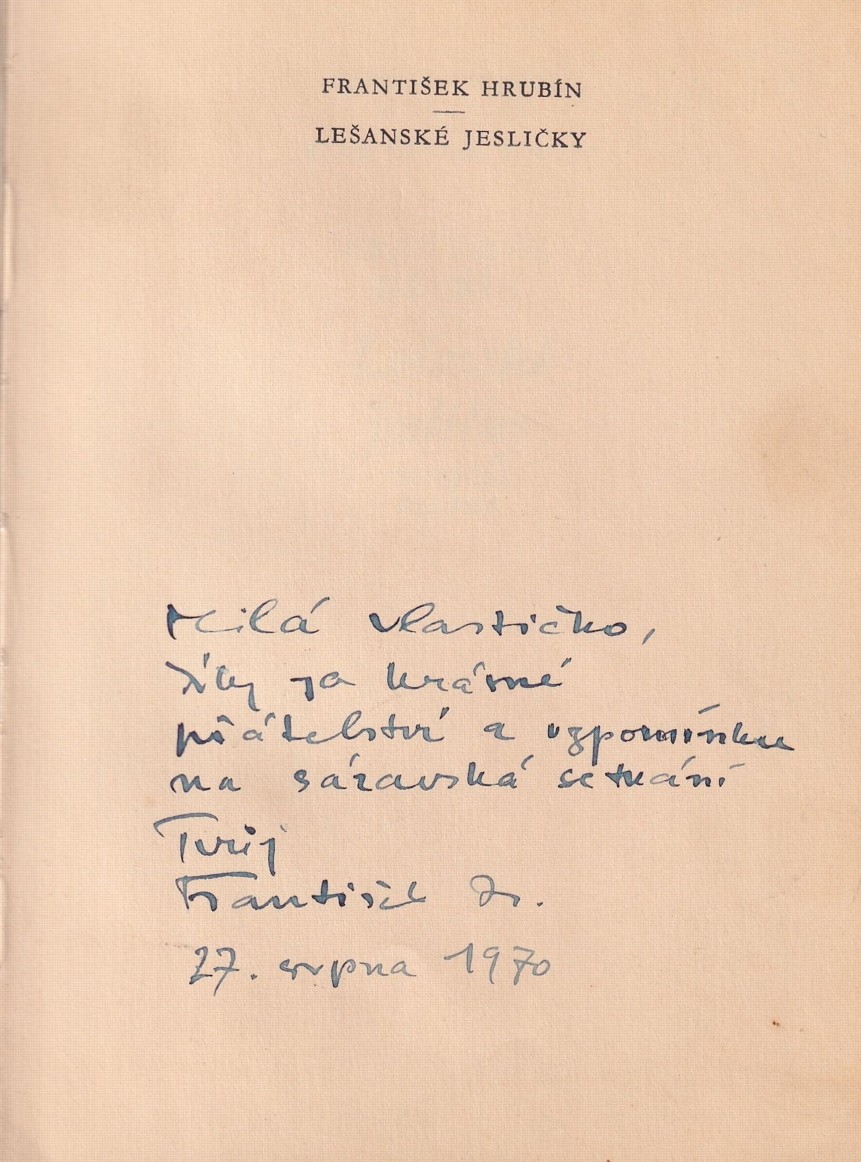 FRANTIŠEK HRUBÍN
LEŠANSKÉ JESLIČKY
Milá Vlastičko,
díky za krásné
přátelství a vzpomínku
na sázavská setkání
Tvůj
František Hr.
27. srpna 1970